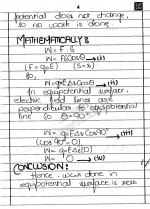 4
potential does not change,
so no work is done.
MATHEMATICALLY:
W = F · S
W = FSCosθ → (i)
(F = q₀E) (S = Δs)
So,
W = q₀EΔsCosθ → (ii)
In equipotential surface,
electric field lines are
perpendicular to equipotential
line so θ = 90°
W = q₀EΔsCos90° → (iii)
(cos 90° = 0)
W = q₀EΔs(0)
W = 0 → (iv)
CONCLUSION:
Hence work done in
equipotential surface is zero